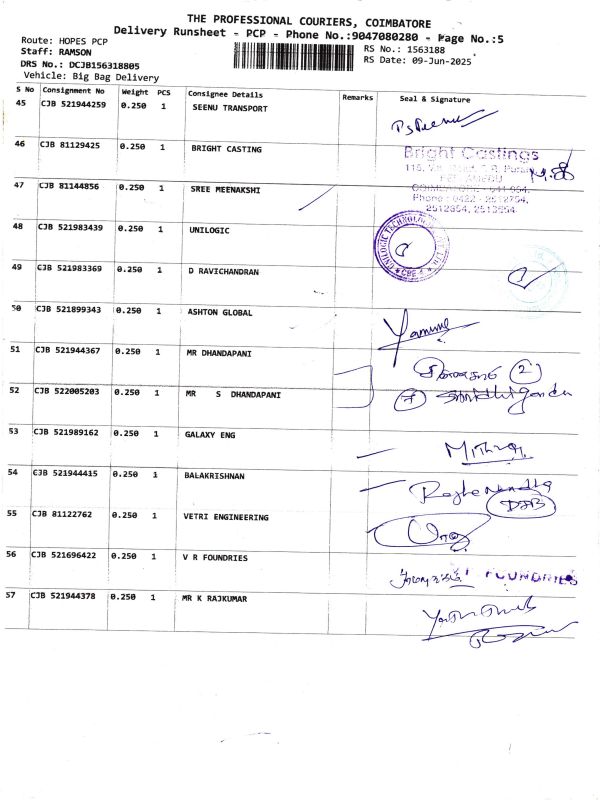 THE PROFESSIONAL COURIERS, COIMBATORE
Delivery Runsheet - PCP - Phone No.:9047080280 - Page No.:5
Route: HOPES PCP
RS No.: 1563188
Staff: RAMSON
RS Date: 09-Jun-2025
DRS No.: DCJB156318805
Vehicle: Big Bag Delivery
S No Consignment No Weight PCS Consignee Details Remarks Seal & Signature
45 CJB 521944259 0.250 1 SEENU TRANSPORT
46 CJB 81129425 0.250 1 BRIGHT CASTING
Bright Castings
47 CJB 81144856 0.250 1 SREE MEENAKSHI
Phone : 0422 - 2512754,
2512654, 2512554
48 CJB 521983439 0.250 1 UNILOGIC
49 CJB 521983369 0.250 1 D RAVICHANDRAN
50 CJB 521899343 0.250 1 ASHTON GLOBAL
51 CJB 521944367 0.250 1 MR DHANDAPANI
52 CJB 522005203 0.250 1 MR S DHANDAPANI
53 CJB 521989162 0.250 1 GALAXY ENG
54 CJB 521944415 0.250 1 BALAKRISHNAN
55 CJB 81122762 0.250 1 VETRI ENGINEERING
56 CJB 521696422 0.250 1 V R FOUNDRIES
FOUNDRIES
57 CJB 521944378 0.250 1 MR K RAJKUMAR